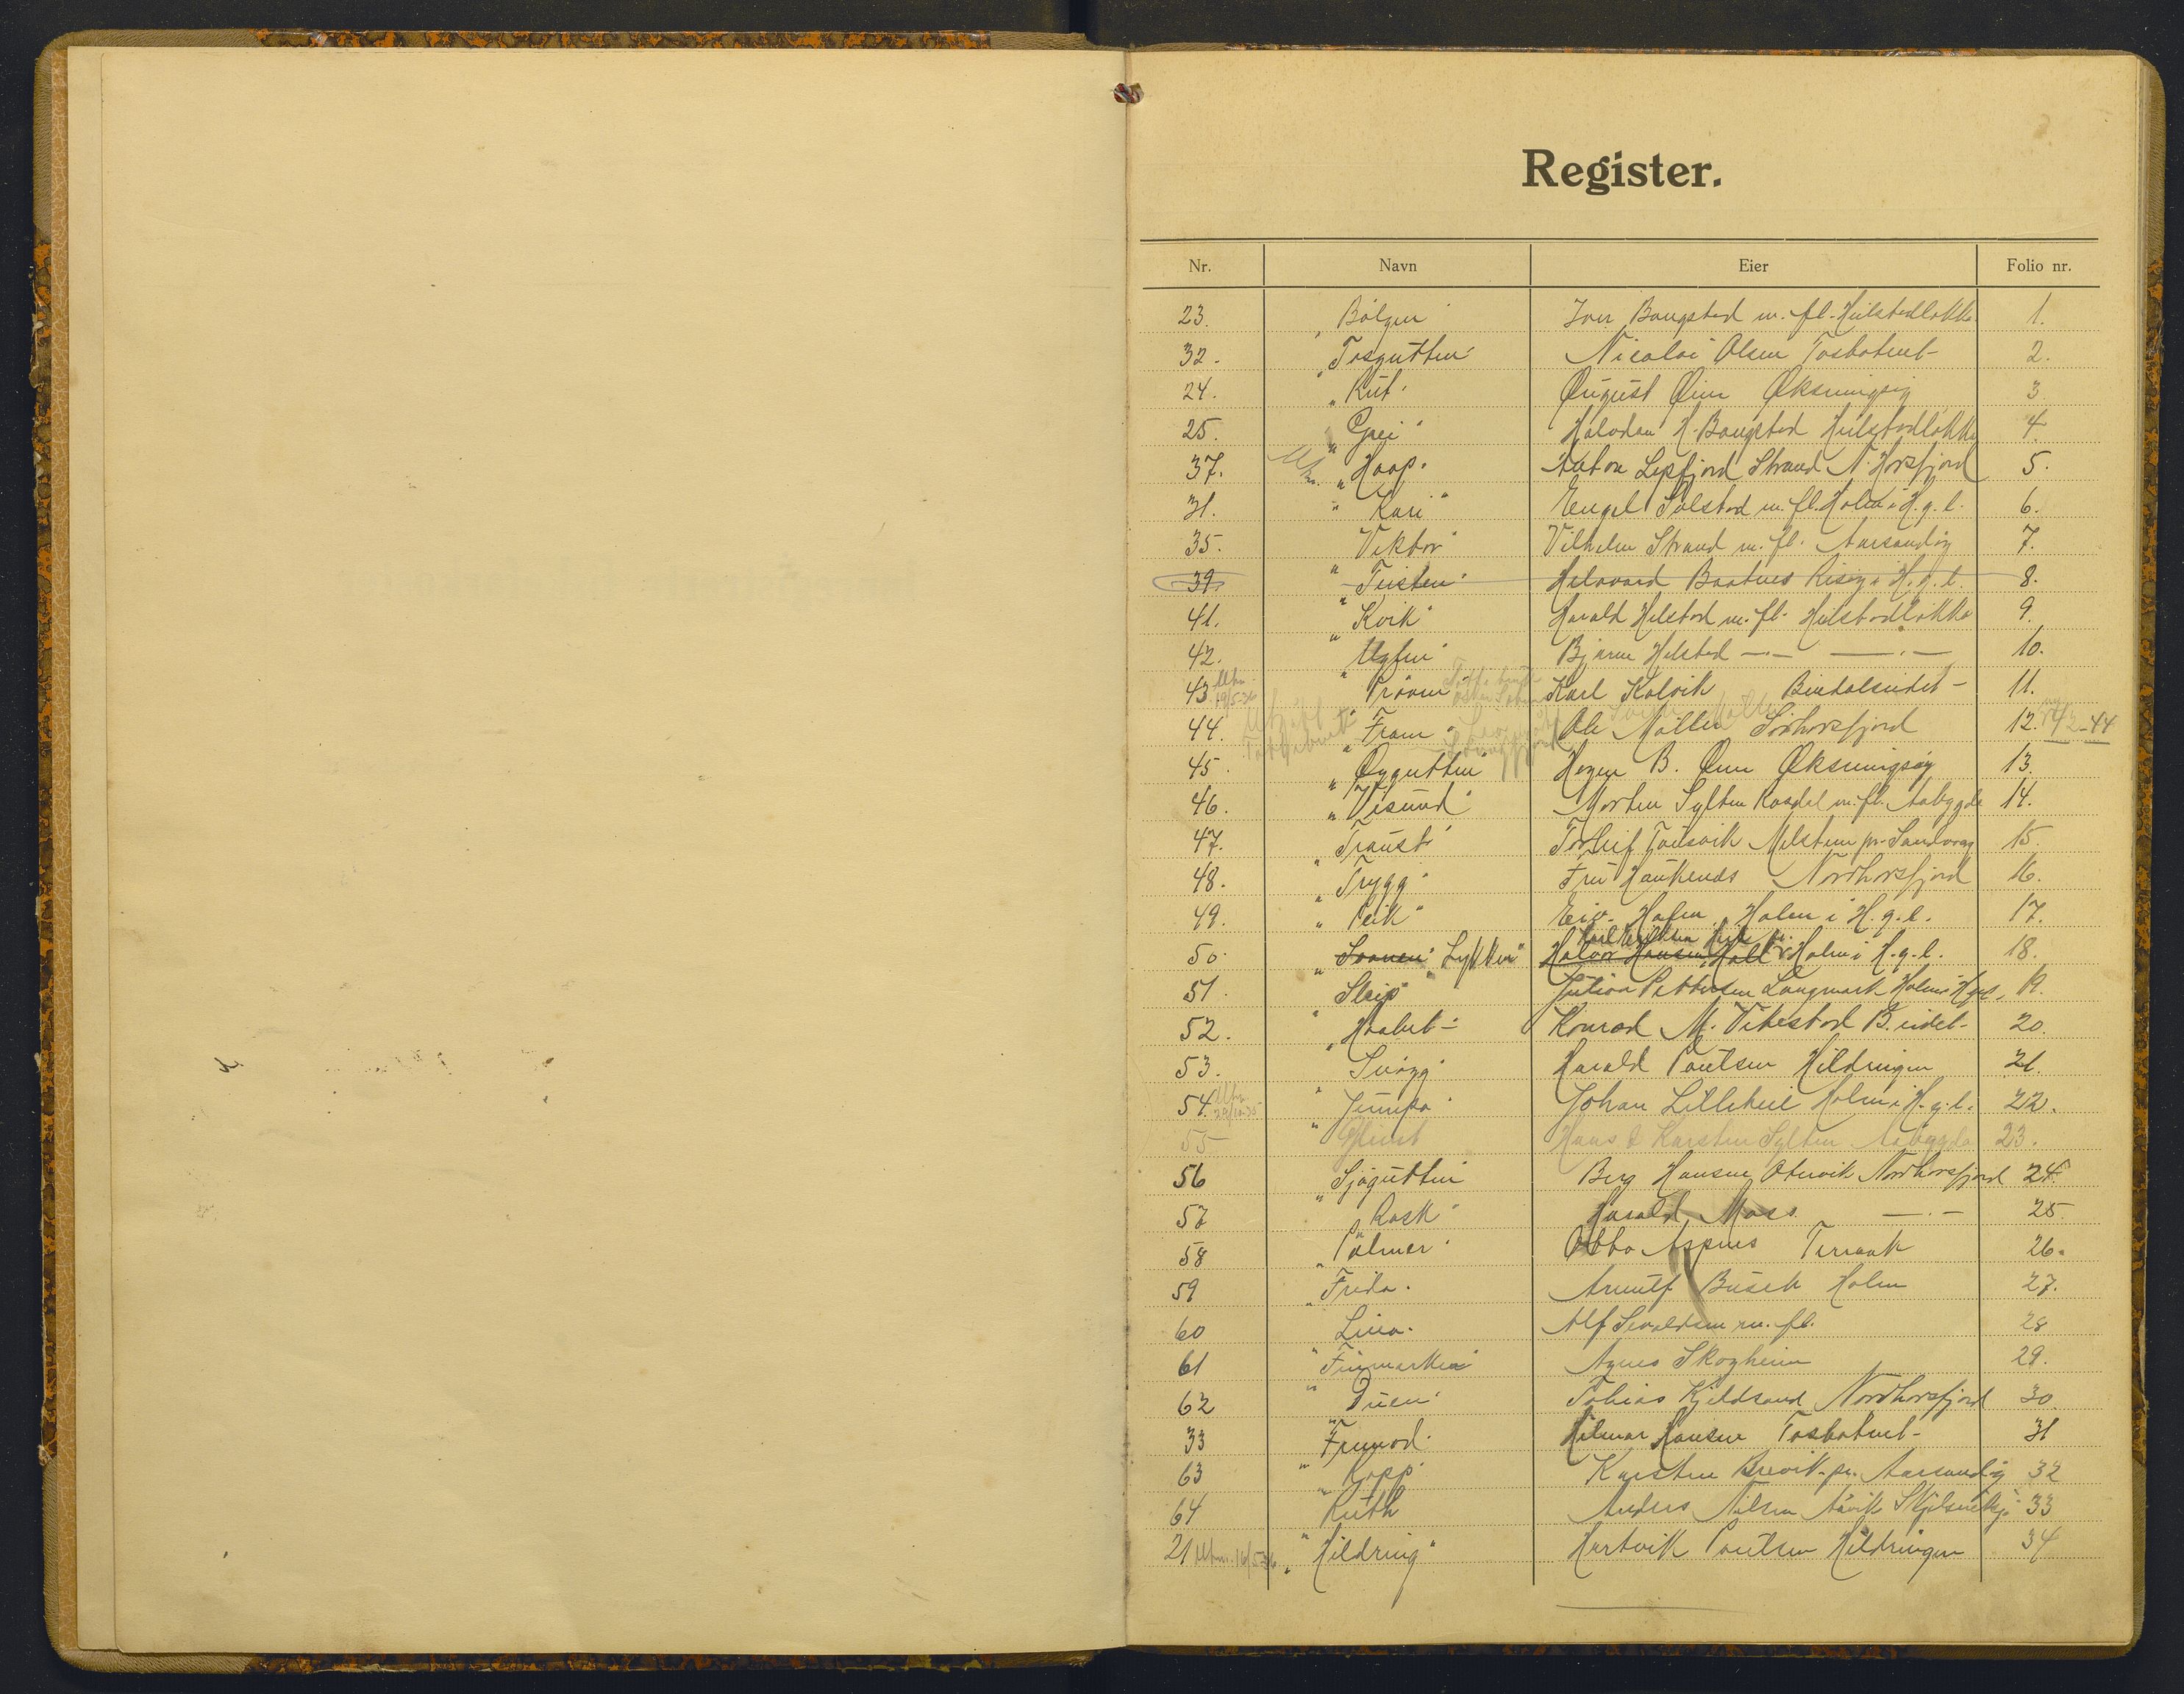 Register.
Nr. Navn Eier Folio nr.
23. „Bølgen" Iver Bangstad m. fl. Heilstadløkka 1.
32. „Tosgutten" Nicolai Olsen Tosbotnet 2.
24. „Knut" August Øren Øksningøy 3
25. „Grei" Halvdan H. Bangstad Heilstadløkka 4.
37. Utm. „Haap" Anton Lepfjord Strand N. Horsfjord 5.
31. „Kari" Engel Solstad m. fl. Holm i H.g.l. 6.
35. „Viktor" Vilhelm Strand m. fl. Aarsandøy 7.
39 „Teisten" Halvard Baatnes Risøy i H.g.l. 8.
41. „Kvik" Harald Helstad m. fl. Heilstadløkka 9.
42. „Uglen" Bjarne Helstad —·— —·— 10.
43 Utm. 19/5-36 „Prøven" Karl Kalvik Bindalseidet 11.
44. „Fram" Ole Møller Sørhorsfjord 12. 42-44
45. „Øygutten" Hagen B. Øren Øksningsøy 13.
46. „Visund" Morten Sylten Kosdal m. fl. Aabygda 14.
47. „Traust" Torleif Paulsvik Melstein pr. Sandvaag 15.
48. „Trygg" Fru Haukenæs Nordhorsfjord 16.
49. „Peik" Eiv. Hafen Holm i H.g.l. 17.
Karl Eriksen Heide pr.
50. „Svanen" Lykken" Halvor Hansen Hall Holm i H.g.l. 18.
51. „Sleip" Julian Pettersen Langmark Holm i H.g.l. 19.
52. „Haabet" Konrad M. Vikestad B. eidet 20.
53. „Snøgg" Harald Poulsen Hildringen 21.
54. Utm. 29/10-35 „Jumpa" Johan Lilleheil Holm i H.g.l. 22.
55 „Glimt Hans & Karsten Sylten Aabygda 23.
56 „Sjøgutten" Berg Hansen Otervik Nordhorsfjord 24.
57 „Rask" Harald Moss —·— 25
58 „Palmer" Otto Aspnes Terraak 26.
59 „Frida" Arnulf Busch Holm 27.
60 „Lina" Alf Sevaldsen m. fl. 28
61 „Finmarken" Agnes Skogheim 29.
62 „Duen" Tobias Kjeldsand Nordhorsfjord 30.
33 „Frumod" Hilmar Hansen Tosbotnet 31
63 „Kapp" Karsten Brevik pr. Aarsandøy 32
64 „Ruth Anders Nilsen Aavik 33
21 Utm. 16/5-36 „Hildring" Hartvik Poulsen Hildringen 34